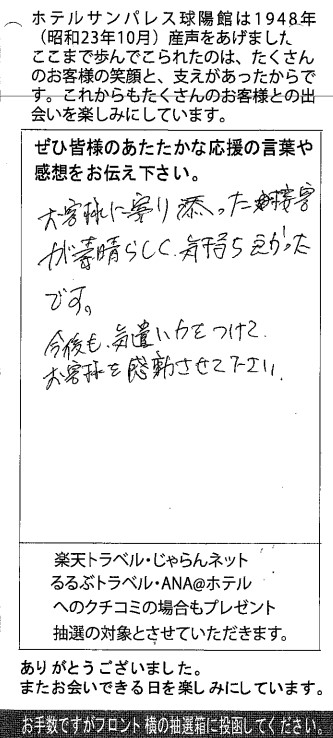 ホテルサンパレス球陽館は1948年
（昭和23年10月）産声をあげました
ここまで歩んでこられたのは、たくさん
のお客様の笑顔と、支えがあったからで
す。これからもたくさんのお客様との出
会いを楽しみにしています。
ぜひ皆様のあたたかな応援の言葉や
感想をお伝え下さい。
お客様に寄り添った接客
が素晴らしく、気持ちよかった
です。
今後も、気遣い力をつけて
お客様を感動させて下さい。
楽天トラベル・じゃらんネット
るるぶトラベル・ANA@ホテル
へのクチコミの場合もプレゼント
抽選の対象とさせていただきます。
ありがとうございました。
またお会いできる日を楽しみにしています。
お手数ですがフロント横の抽選箱に投函してください。